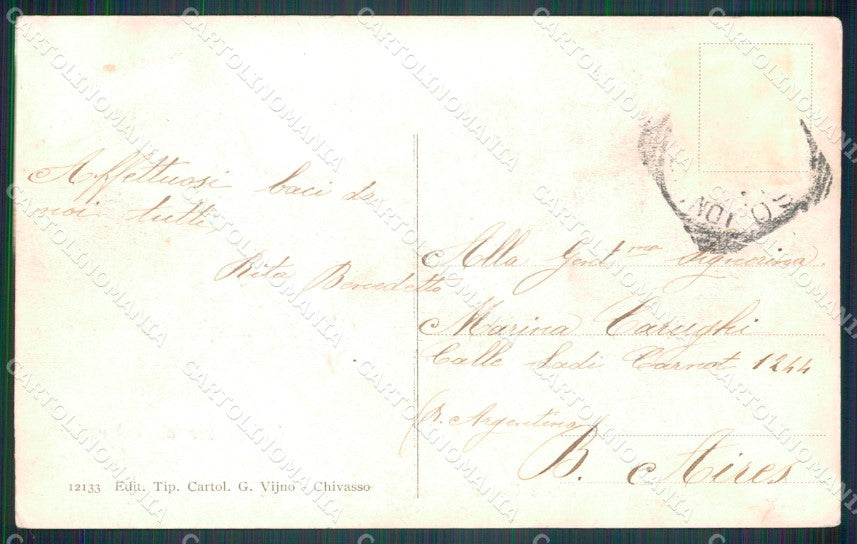 Affettuosi baci da
noi tutti
Rita Benedetto
Alla Gent.ma Signorina
Marina Carughi
Calle Sadi Carnot 1244
(R. Argentina)
B. Aires
12133 Edit. Tip. Cartol. G. Vijno - Chivasso
CARTOLINOMANIA